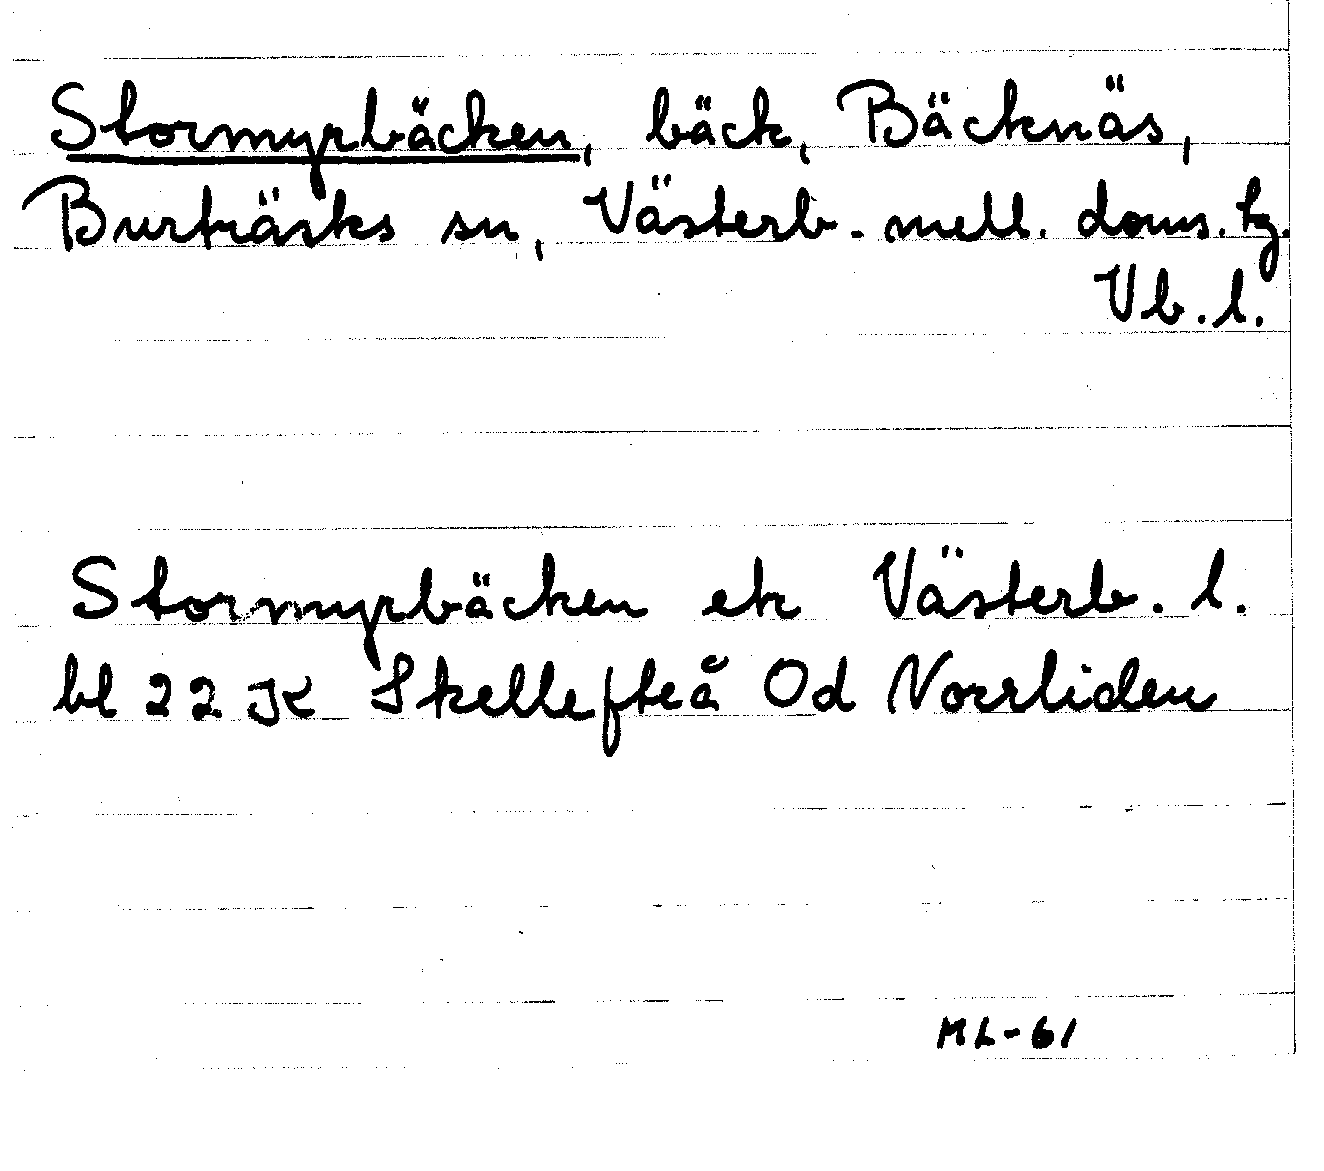 Stormyrbäcken, bäck, Bäcknäs,
Burträsks sn, Västerb. mell. doms. tg.
Vb. l.
Stormyrbäcken ek Västerb. l.
bl 22 JK Skellefteå Od Norrliden
ML-61